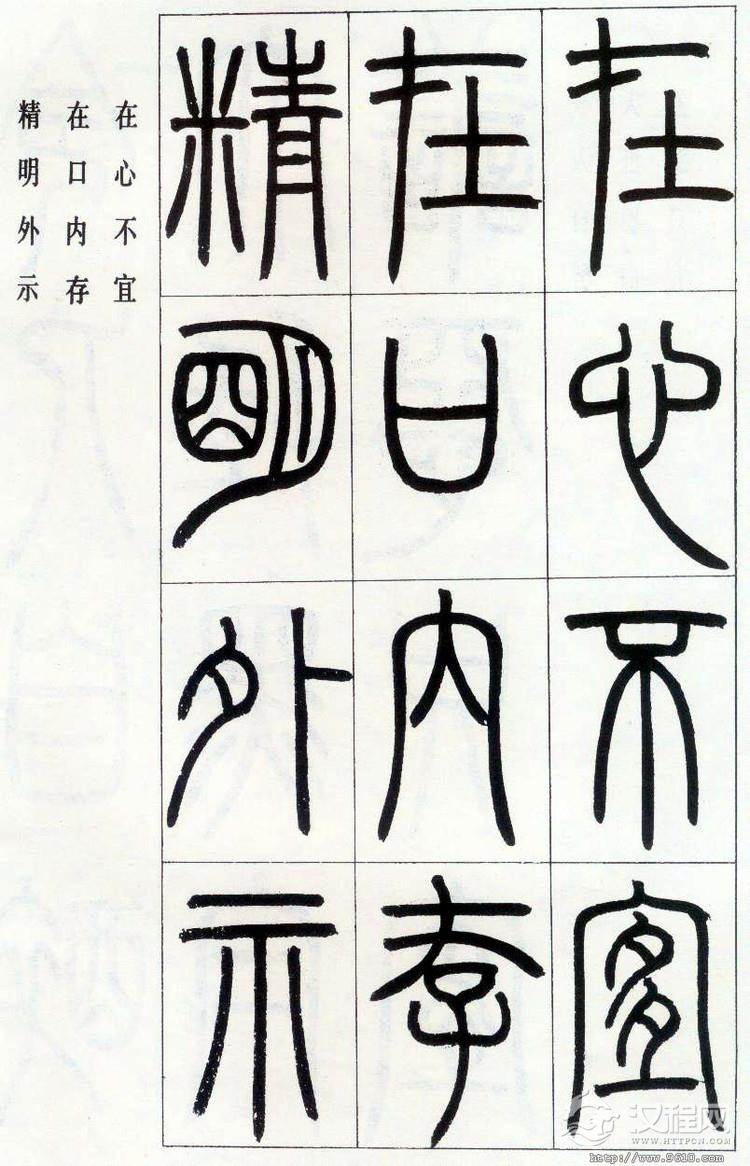 在心不宜
在口内存
精明外示
在心不宜
在口内存
精明外示
汉程网
WWW.HTTPCN.COM
http://www.9610.com